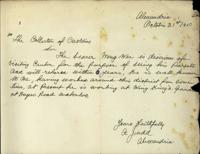 Alexandria
October 31st 1910
The Collector of Customs
Sir
The bearer Wong Wee is desirous of
Visiting Canton for the purpose of seeing his Parents
And will return within 2 years, He is well known
to me, Having worked around this district for some
time, at Present he is working at Wing King's Garden
at Bogan Road Waterloo.
Yours Faithfully
A. Judd
Alexandria